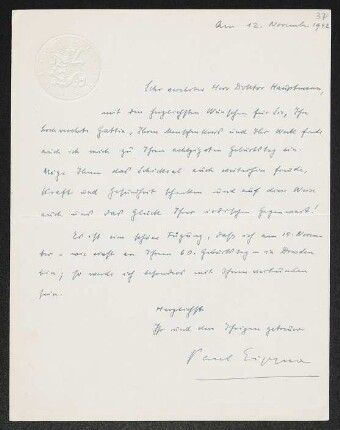 37
Am 12. November 1942
Sehr verehrter Herr Doktor Hauptmann,
mit den herzlichsten Wünschen für Sie, Ihre
hochverehrte Gattin, Ihren Menschenkreis und Ihr Werk finde
auch ich mich zu Ihrem achtzigsten Geburtstag ein.
Möge Ihnen das Schicksal auch weiterhin Freude,
Kraft und Gesundheit schenken und auf diese Weise
auch uns das Glück Ihrer irdischen Gegenwart!
Es ist eine schöne Fügung, dass ich am 15. Novem-
ber - wie einst an Ihrem 60. Geburtstag - in Dresden
bin; so werde ich besonders mit Ihnen verbunden
sein.
Herzlichst
Ihr und den Ihrigen getreuer
Paul